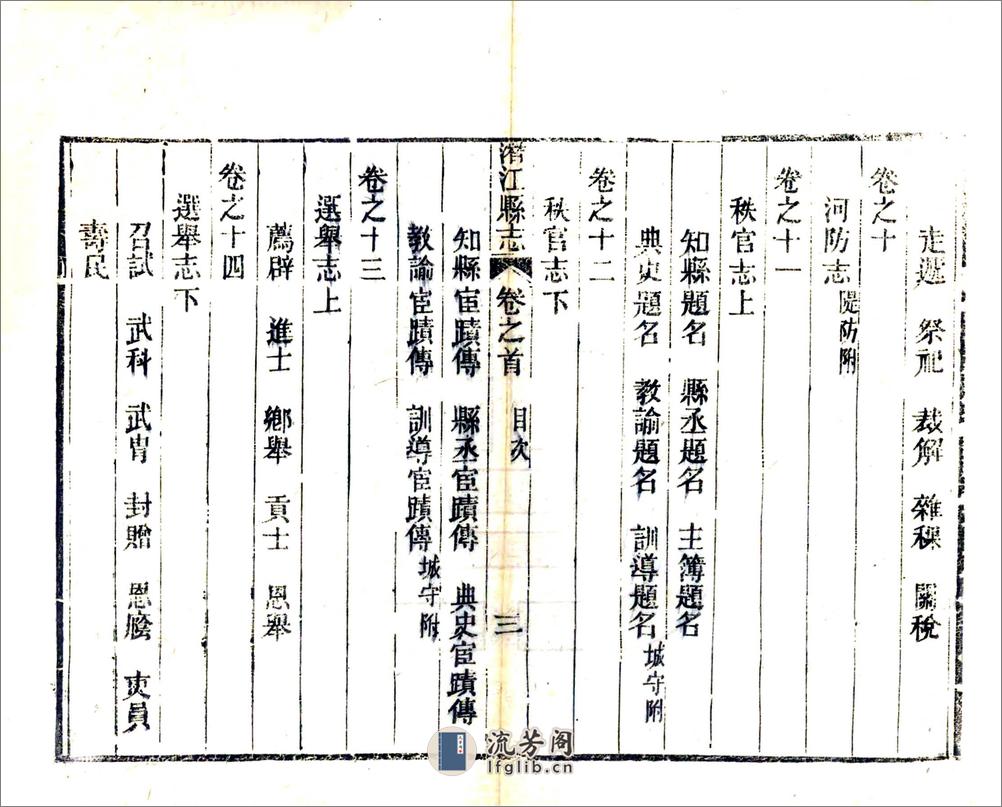 走遞 祭祀 裁解 雜稞 關稅
卷之十
河防志 隄防附
卷之十一
秩官志上
知縣題名 縣丞題名 主簿題名
典史題名 教諭題名 訓導題名 城守附
卷之十二
秩官志下
潛江縣志 卷之首 目次 三
知縣宦蹟傳 縣丞宦蹟傳 典史宦蹟傳
教諭宦蹟傳 訓導宦蹟傳 城守附
卷之十三
選舉志上
薦辟 進士 鄉舉 貢士 恩舉
卷之十四
選舉志下
召試 武科 武胄 封贈 恩廕 吏員
壽民
流芳阁
lfglib.cn